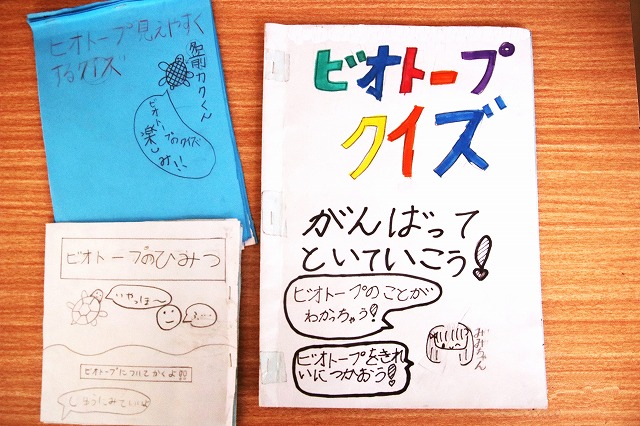 ビオトープ見えやすく
するクイズ
名前カクくん
ビオトープのクイズ
楽しみ!!
ビオトープ
クイズ
がんばって
といていこう!
ビオトープのことが
わかっちゃう!
みみちゃん
ビオトープをきれ
いにつかおう!
ビオトープのひみつ
いやっほ〜
ビオトープについてかくよ!!